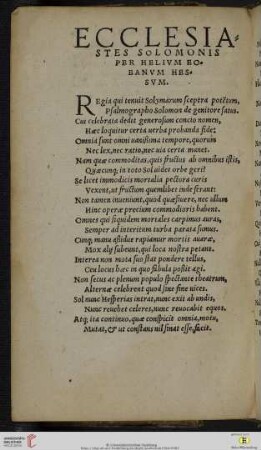 ECCLESIA
STES SOLOMONIS
PER HELIVM EO-
BANVM HES-
SVM.
REgia qui tenuit Solymarum sceptra potētum,
Psalmographo Solomon de genitore satus.
Cui celebrata dedit generosum concio nomen,
Hæc loquitur certa uerba probanda fide;
Omnia sunt omni uanissima tempore, quorum
Nec lex, nec ratio, nec uia certa manet.
Nam quæ commoditas, quis fructus ab omnibus istis,
Quæcunq; in toto Sol uidet orbe geri?
Se licet immodicis mortalia pectora curis
Vexent, ut fructum quemlibet inde ferant:
Non tamen inueniunt, quod quæsiuere, nec ullum
Hinc operæ precium commodioris habent.
Omnes qui sequidem mortales carpimus auras,
Semper ad interitum turba parata sumus.
Cunq; manu assidue rapiamur mortis auaræ,
Mox alij subeunt, qui loca nostra petant.
Interea non mota suo stat pondere tellus,
Ceu locus hæc in quo fabula possit agi.
Non secus ac plenum populo spectante theatrum,
Alternæ celebrent quod sine fine uices.
Sol nunc Hesperias intrat, nunc exit ab undis,
Nunc reuehit celeres, nunc reuocabit equos.
Atq; ita continuo, quæ conspicit omnia, motu,
Mutat, & ut constans nil sinat esse, facit.